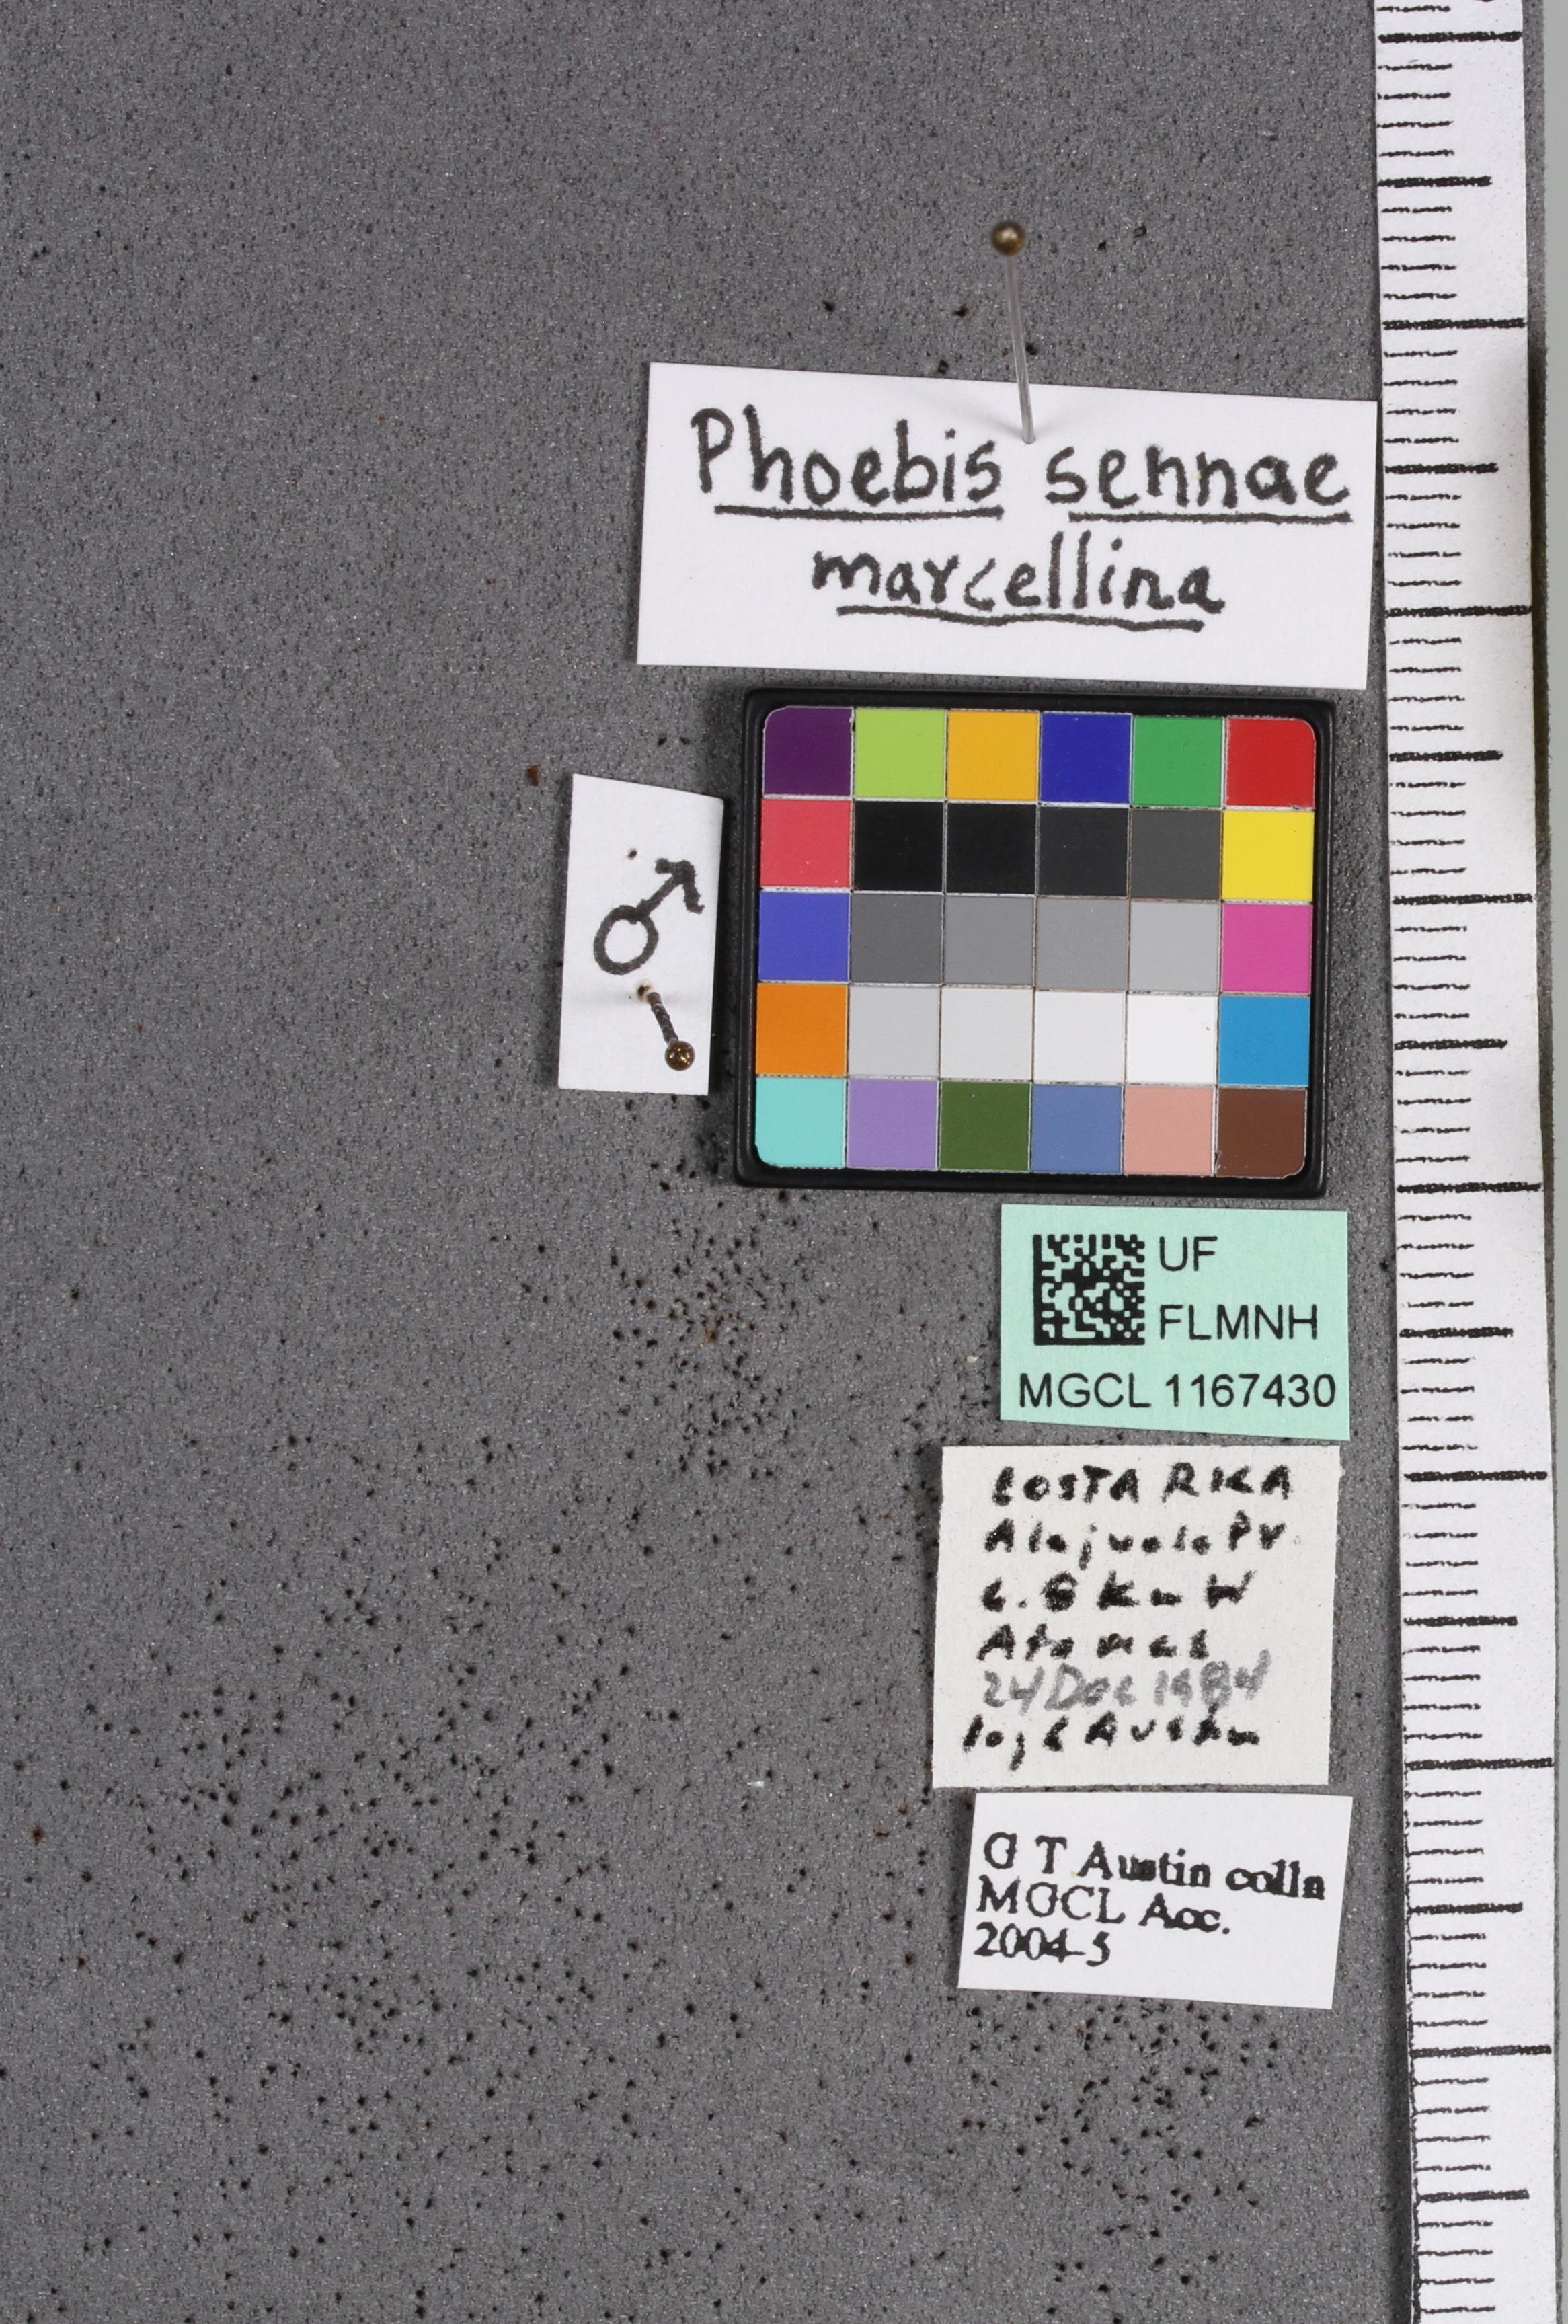 Phoebis sennae
marcellina
♂
UF
FLMNH
MGCL 1167430
COSTA RICA
Alajuela Pr
6.8 Km W
Atenas
24 Dec 1984
G T Austin colln
MGCL Acc.
2004-5